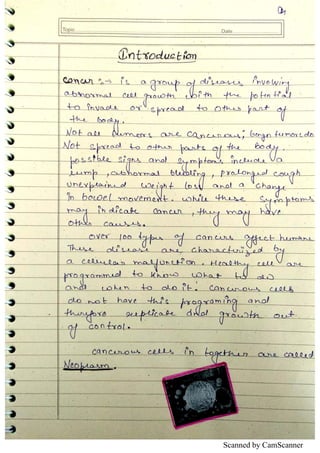 Topic
Date
Introduction
Cancer :-> is a group of diseases involving
abnormal cell growth with the potential
to invade or spread to other part of
the body.
Not all tumors are cancerous; do
Not spread to other parts of the body.
possible signs and symptoms include a
lump, abnormal bleeding, prolonged cough
unexplained weight loss and a change
in bowel movement. while these symptoms
may indicate cancer, they may have
other causes.
over 100 types of cancers affect humans
These diseases are characterized by
a cellular malfunction. Healthy cell are
programmed to know what to do
and when to do it. Cancerous cells
do not have this programing and
therefore replicate and growth out
of control.
cancerous cells in together are called
Neoplasm.
Scanned by CamScanner